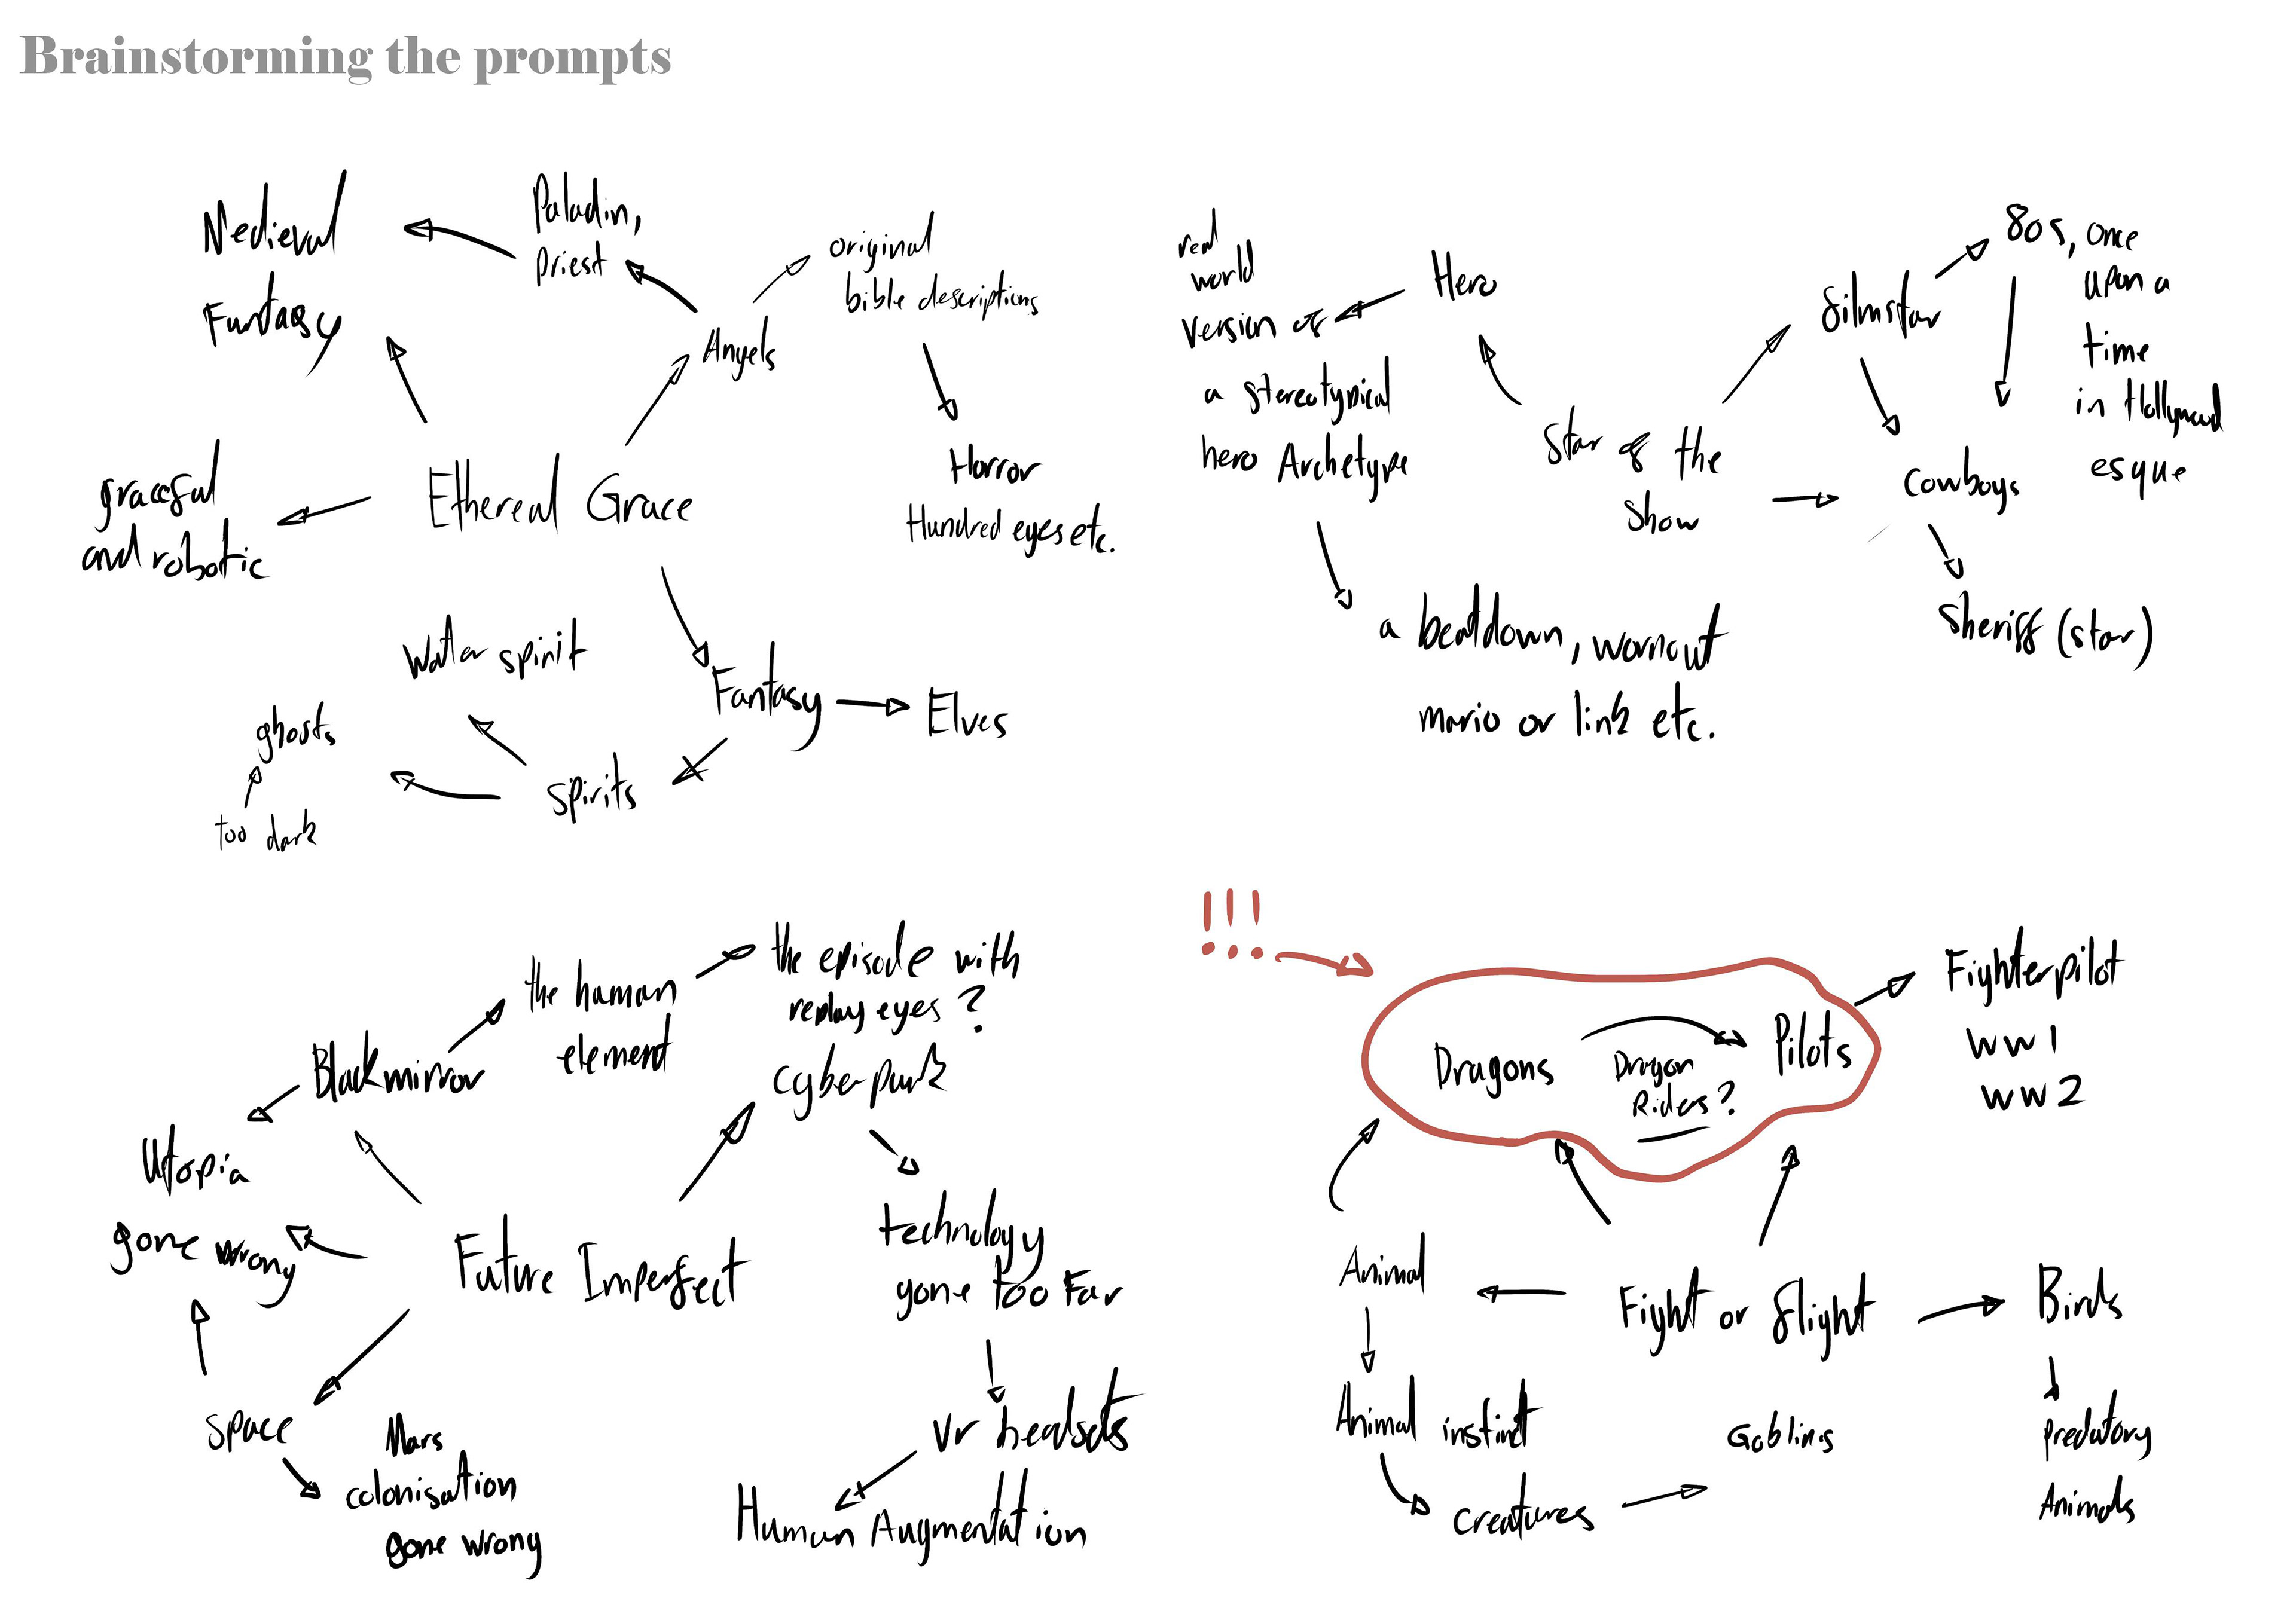 Brainstorming the prompts
Medieval
Fantasy
Paladin,
Priest
original
bible descriptions
Angels
Horror
Hundred eyes etc.
Ethereal Grace
graceful
and robotic
Water spirit
Fantasy
Elves
ghosts
too dark
spirits
real
world
version of
a stereotypical
hero Archetype
Hero
filmstar
80s, once
upon a
time
in Hollywood
esque
Star of the
Show
Cowboys
Sheriff (star)
a beatdown, wornout
mario or link etc.
the episode with
replay eyes?
the human
element
Blackmirror
cyberpunk
Utopia
gone wrong
Future Imperfect
technology
gone too Far
space
Mars
colonisation
gone wrong
vr headsets
Human Augmentation
!!!
Dragons
Dragon
Riders?
Pilots
Fighterpilot
WW1
WW2
Animal
Fight or flight
Birds
Animal instinct
Goblins
predatory
Animals
creatures